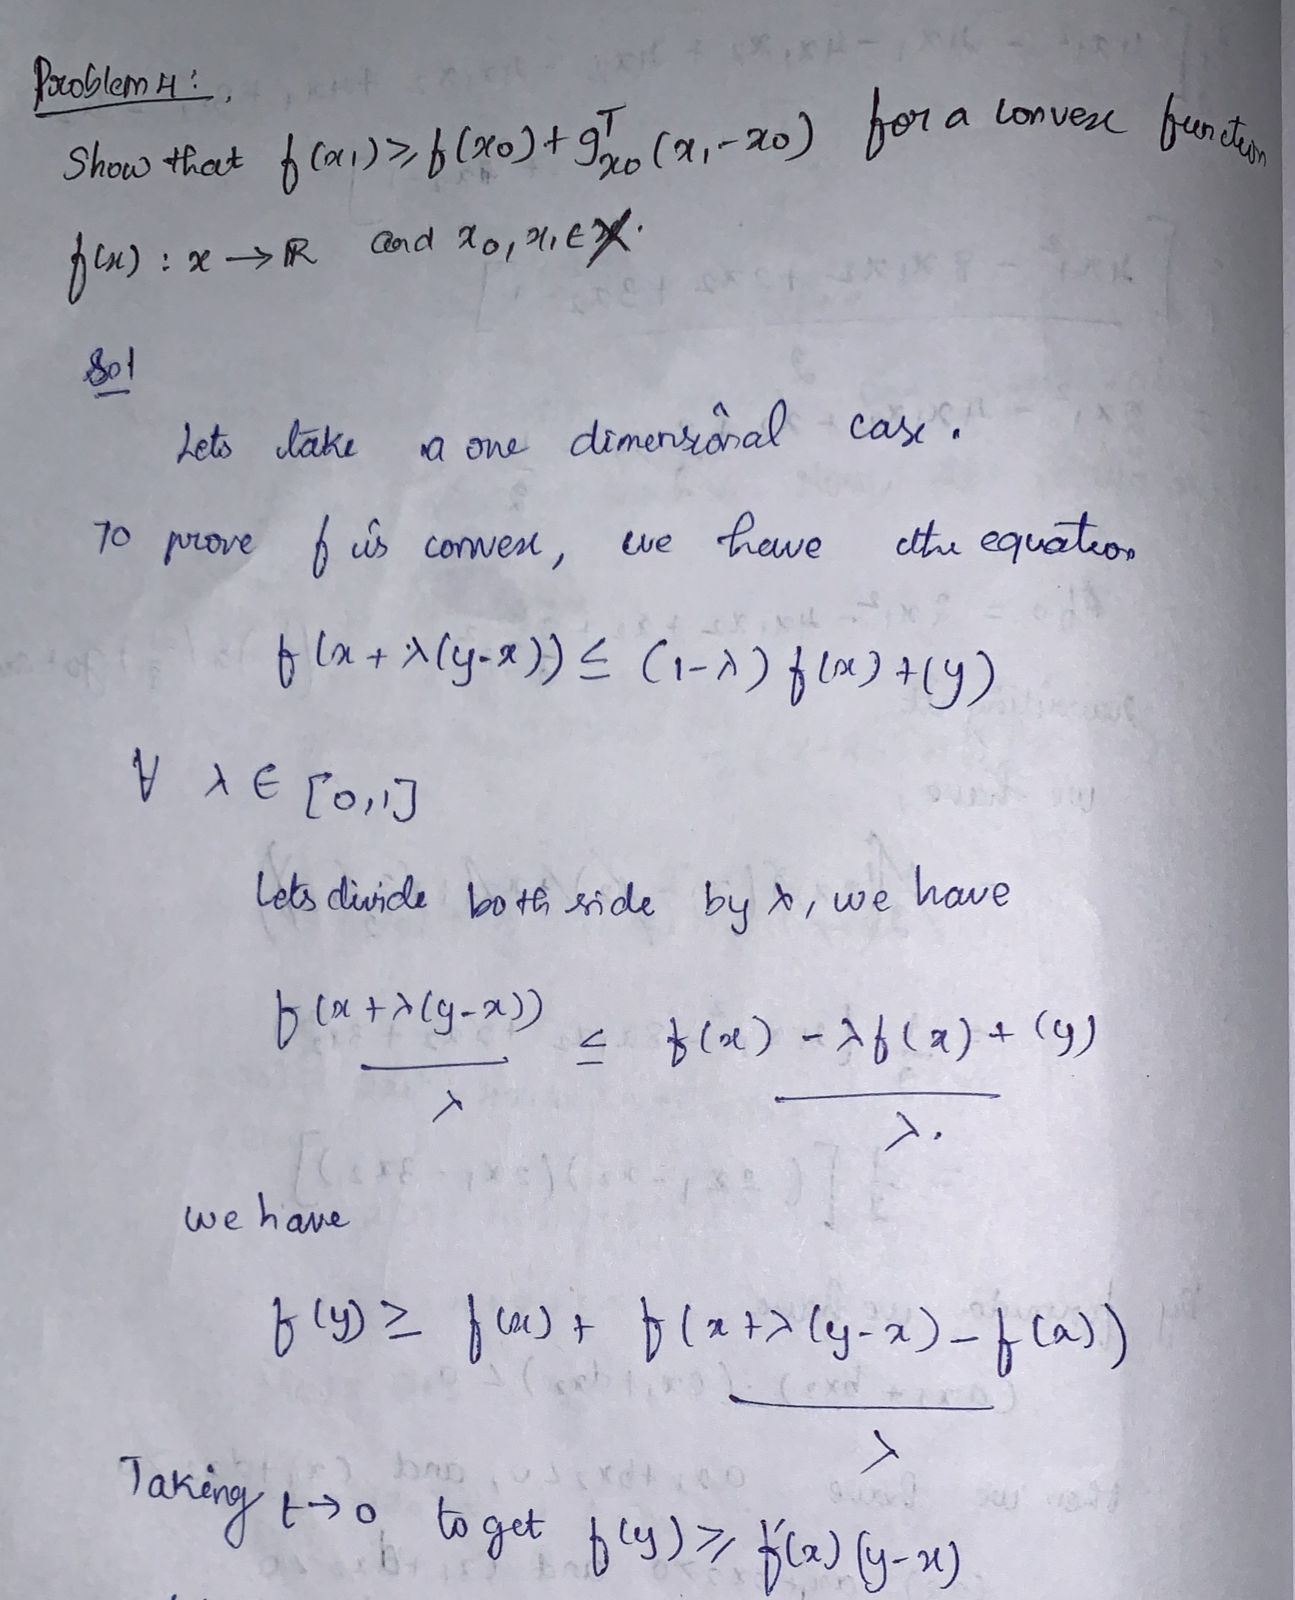 Problem 4:
Show that f(x₁) ≥ f(x₀) + gᵀₓ₀ (x₁ - x₀) for a convex function
f(x) : x → ℝ and x₀, x₁ ∈ X.
Sol
Lets take a one dimensional case.
To prove f is convex, we have the equation
f(x + λ(y-x)) ≤ (1-λ) f(x) + (y)
∀ λ ∈ [0,1]
Lets divide both side by λ, we have
f(x + λ(y-x)) / λ ≤ f(x) - λf(x) + (y) / λ.
we have
f(y) ≥ f(x) + f(x + λ(y-x) - f(x)) / λ
Taking t → 0 to get f(y) ≥ f'(x) (y-x)